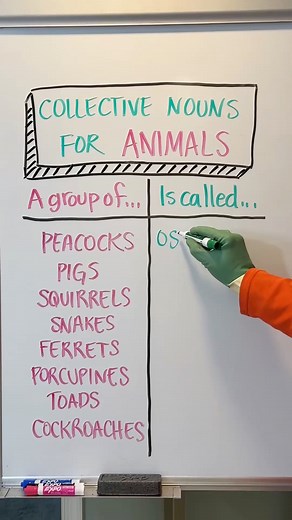 COLLECTIVE NOUNS
FOR ANIMALS
A group of... Is called...
PEACOCKS OS
PIGS
SQUIRRELS
SNAKES
FERRETS
PORCUPINES
TOADS
COCKROACHES
EXPO